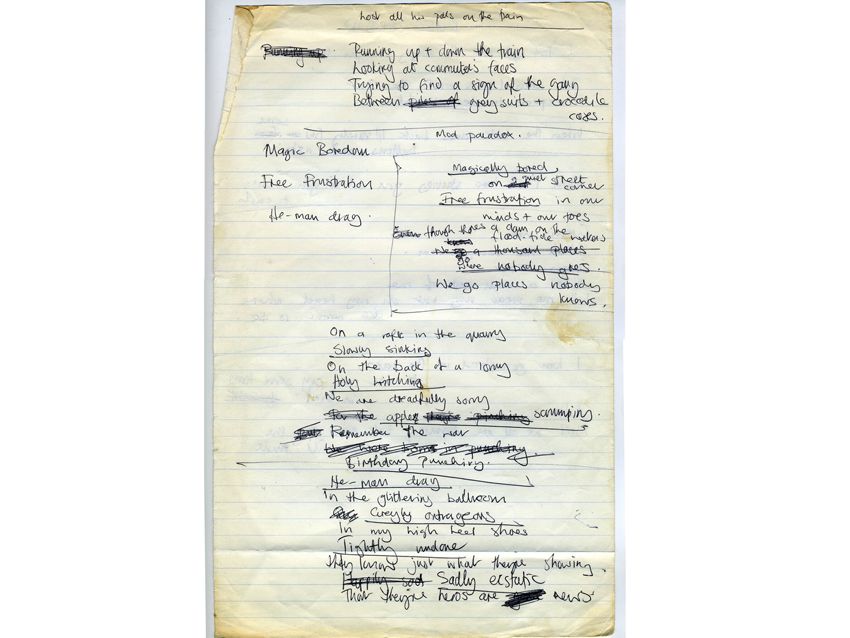 Lost all his pals on the train
Running up Running up + down the train
Looking at commuters faces
Trying to find a sign of the gang
Between piles of grey suits + crocodile
cases.
Mod paradox.
Magic Boredom
Free Frustration
He-man drag.
Magically bored
on a quiet street
corner
Free frustration in our
minds + our toes
Even though theres a dam on the
flood-tide
We go a thousand places
where nobody goes.
We go places nobody
knows.
On a raft in the quarry
Slowly sinking
On the back of a lorry
Holy hitching
We are dreadfully sorry
For the apples they're pinching scrumping.
Remember the war
We were born in punching.
Birthday Punching.
He-man drag
In the glittering ballroom
Greyly outrageous
In my high heel shoes
Tightly undone
They know just what theyre showing.
Happily sad Sadly ecstatic
That theyre heros are news